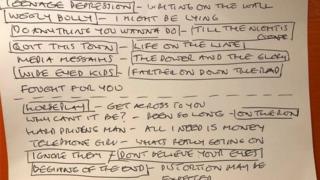 TEENAGE DEPRESSION - WRITING ON THE WALL
WESTLY BOLLY - I MIGHT BE LYING
DO ANYTHING YOU WANNA DO - TILL THE NIGHT IS OVER
QUIT THIS TOWN - LIFE ON THE LINE
MEDIA MESSIAHS - THE POWER AND THE GLORY
WIDE EYED KIDS - FARTHER ON DOWN THE ROAD
FOUGHT FOR YOU
HORSEPLAY - GET ACROSS TO YOU
WHY CAN'T IT BE? - BEEN SO LONG - ON THE RUN
HARD DRIVING MAN - ALL I NEED IS MONEY
TELEPHONE GIRL - WHAT'S REALLY GOING ON
IGNORE THEM / DON'T BELIEVE YOUR EYES
BEGINNING OF THE END - DISTORTION MAY BE
EXPECTED